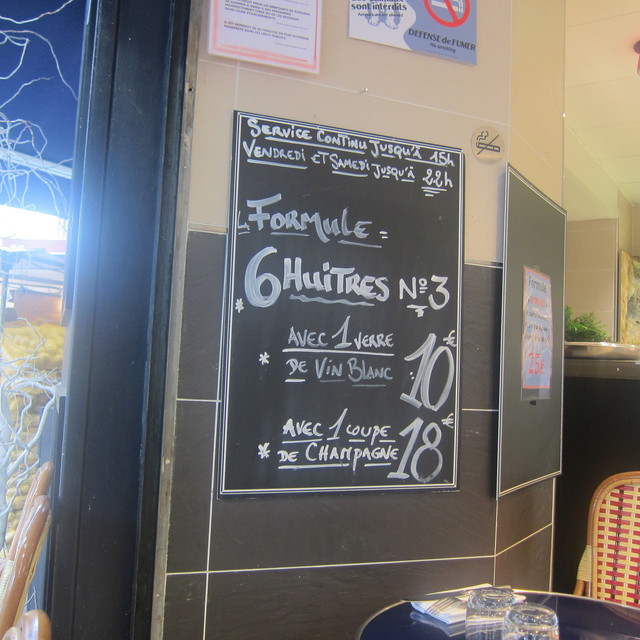 sont interdits
DEFENSE de FUMER
No smoking
SERVICE CONTINU JUSQU'À 15h
VENDREDI ET SAMEDI JUSQU'À 22h
FORMULE =
6 HUITRES Nº3
* AVEC 1 VERRE
DE VIN BLANC 10€
* AVEC 1 COUPE
DE CHAMPAGNE 18€
Formule
25€